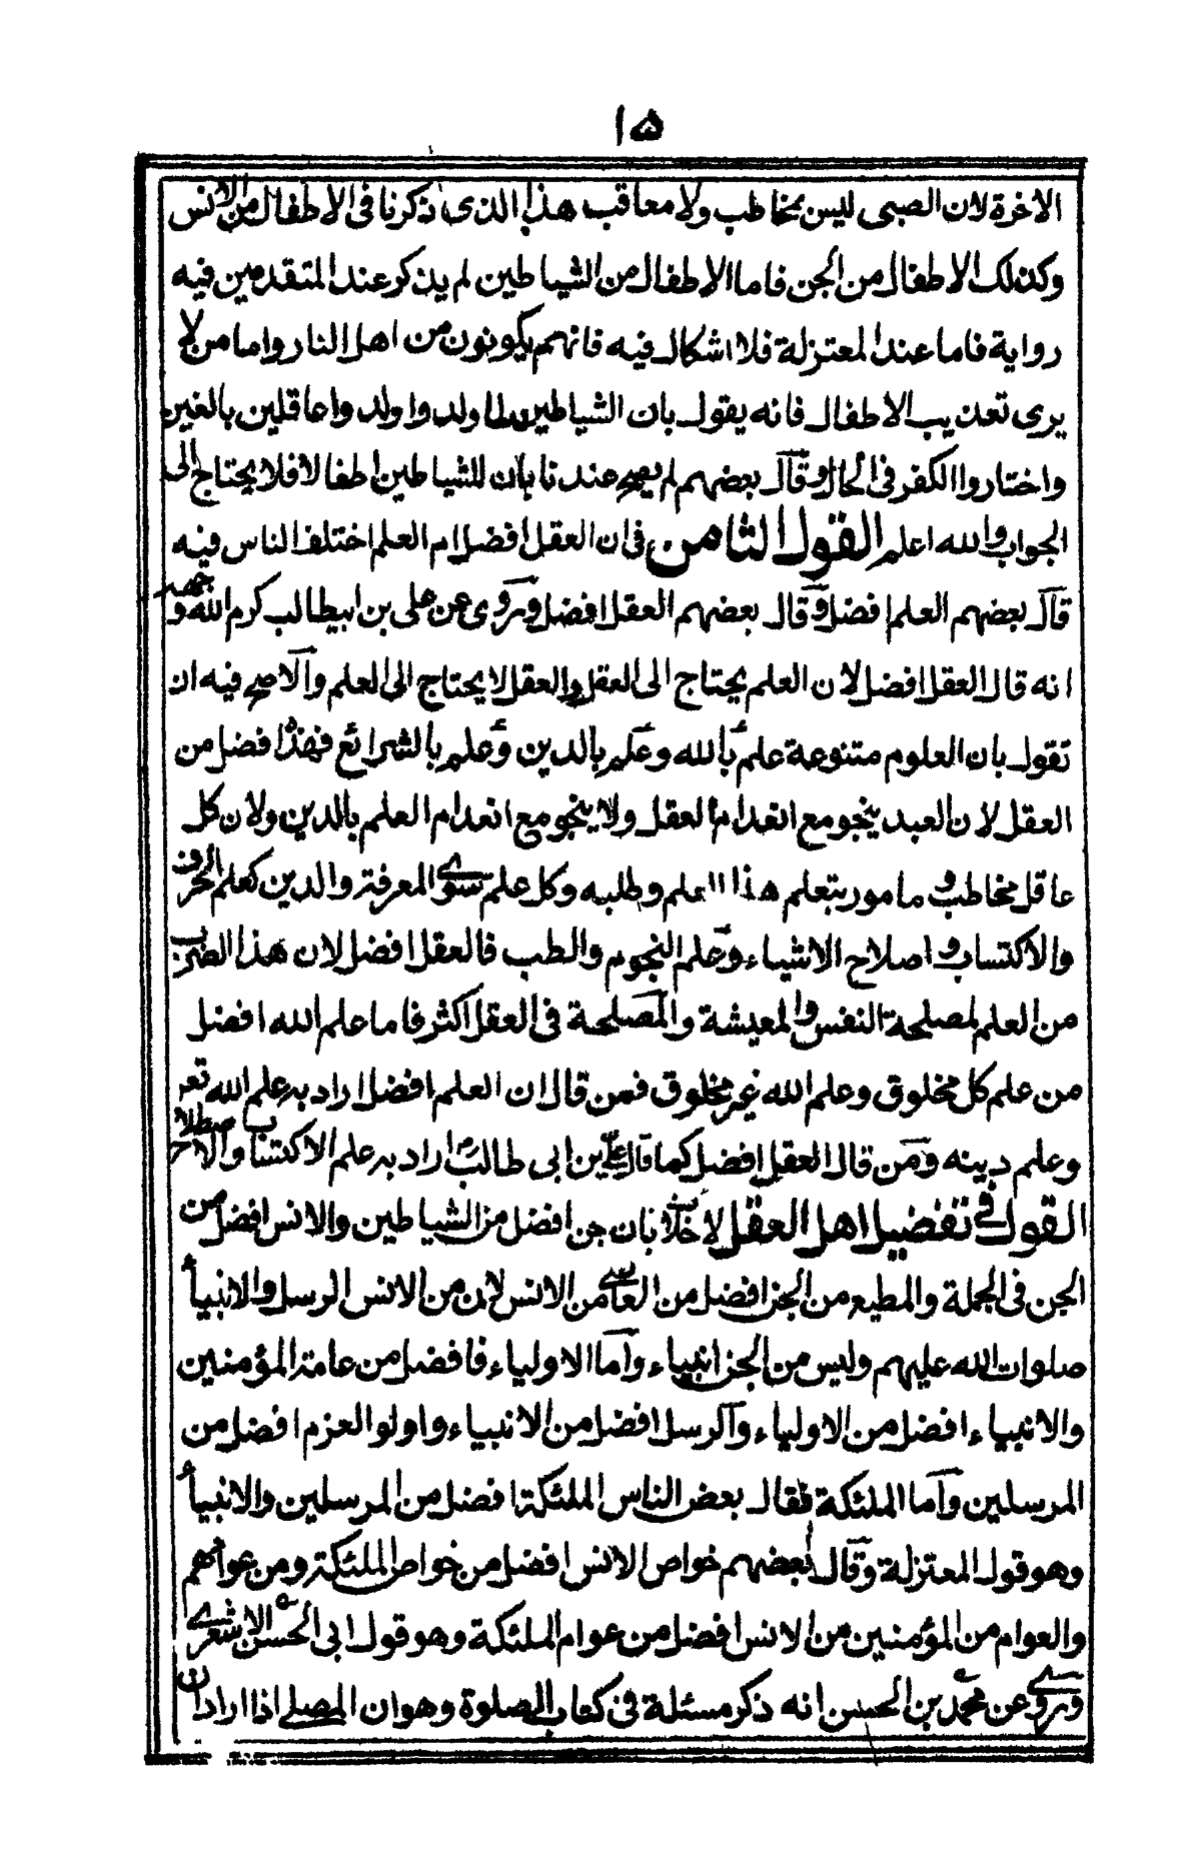 ١٥
الاخرة لان الصبى ليس بمخاطب ولا معاقب هذا الذى ذكرنا فى الاطفال من الانس
وكذلك الاطفال من الجن فاما الاطفال من الشياطين لم يذكر عند المتقدمين فيه
رواية فاما عند المعتزلة فلا اشكال فيه فانهم يكونون من اهل النار واما من لا
يرى تعذيب الاطفال فانه يقول بان الشياطين لما ولدوا ولدوا عاقلين بالغين
واختاروا الكفر فى الحال وقال بعضهم لم يصح عندنا بان للشياطين اطفالا فلا يحتاج الى
الجواب والله اعلم القول الثامن فى ان العقل افضل ام العلم اختلف الناس فيه
قال بعضهم العلم افضل وقال بعضهم العقل افضل وروى عن على بن ابيطالب كرم الله وجهه
انه قال العقل افضل لان العلم يحتاج الى العقل والعقل لا يحتاج الى العلم والاصح فيه ان
تقول بان العلوم متنوعة علم بالله وعلم بالدين وعلم بالشرائع فهذا افضل من
العقل لان العبد ينجو مع انعدام العقل ولا ينجو مع انعدام العلم بالدين ولان كل
عاقل مخاطب و مامور بتعلم هذا العلم وطلبه وكل علم سوى المعرفة والدين كعلم الحرف
والاكتساب و اصلاح الاشياء وعلم النجوم والطب فالعقل افضل لان هذا الضرب
من العلم لمصلحة النفس والمعيشة والمصلحة فى العقل اكثر فاما علم الله افضل
من علم كل مخلوق وعلم الله غير مخلوق فمن قال ان العلم افضل اراد به علم الله تعر
وعلم دينه ومن قال العقل افضل كما قال على بن ابى طالب اراد به علم الاكتساب والاصطلاح
القول فى تفضيل اهل العقل لا خلاف بان جن افضل من الشياطين والانس افضل من
الجن فى الجملة والمطيع من الجن افضل من العاصى من الانس لان من الانس الرسل والانبيأ
صلوات الله عليهم وليس من الجن انبياء واما الاولياء فافضل من عامة المؤمنين
والانبياء افضل من الاولياء والرسل افضل من الانبياء واولو العزم افضل من
المرسلين واما الملئكة فقال بعض الناس الملئكة افضل من المرسلين والانبيأ
وهو قول المعتزلة وقال بعضهم خواص الانس افضل من خواص الملئكة ومن عوامهم
والعوام من المؤمنين من الانس افضل من عوام الملئكة وهو قول ابى الحسن الاشعرى
وروى عن محمد بن الحسن انه ذكر مسئلة فى كتاب الصلوة وهو ان المصلى اذا اراد ان